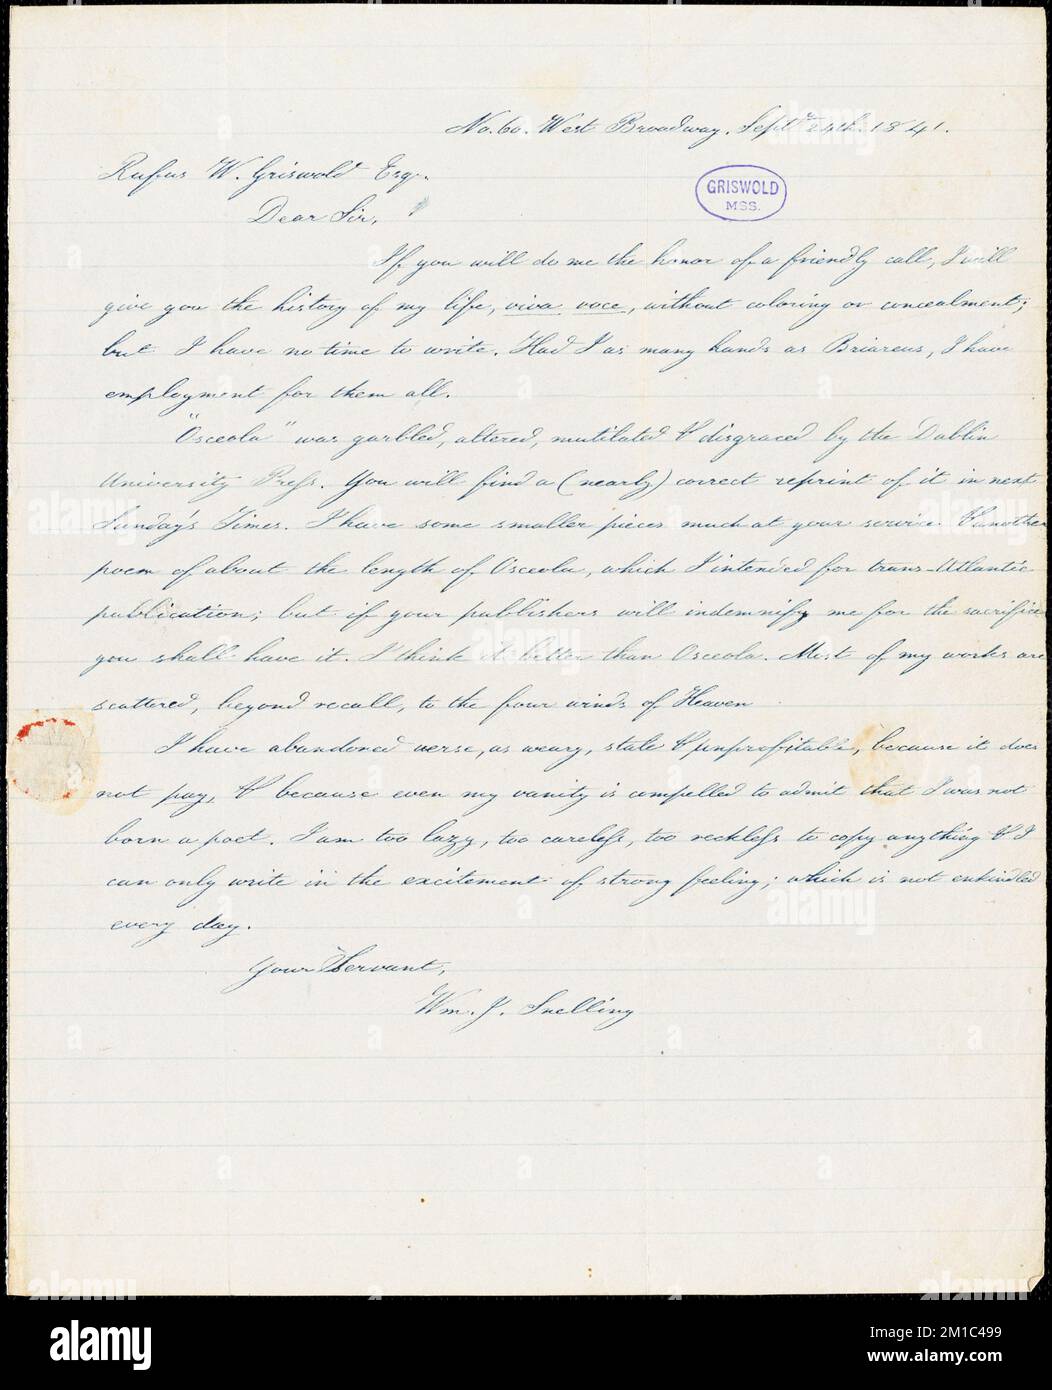 No. 60. West Broadway. Septr 24th. 1841.
Rufus W. Griswold Esq.
GRISWOLD
MSS.
Dear Sir,
If you will do me the honor of a friendly call, I will
give you the history of my life, viva voce, without coloring or concealment;
but I have no time to write. Had I as many hands as Briareus, I have
employment for them all.
"Osceola" was garbled, altered, mutilated & disgraced by the Dublin
University Press. You will find a (nearly) correct reprint of it in next
Sunday's Times. I have some smaller pieces much at your service & another
poem of about the length of Osceola, which I intended for trans-Atlantic
publication; but if your publishers will indemnify me for the sacrifice
you shall have it. I think it better than Osceola. Most of my works are
scattered, beyond recall, to the four winds of Heaven
I have abandoned verse, as weary, stale & unprofitable, because it does
not pay, & because even my vanity is compelled to admit that I was not
born a poet. I am too lazy, too careless, too reckless to copy anything & I
can only write in the excitement of strong feeling; which is not enkindled
every day.
Your Servant,
Wm. J. Snelling
alamy
Image ID: 2M1C499
www.alamy.com